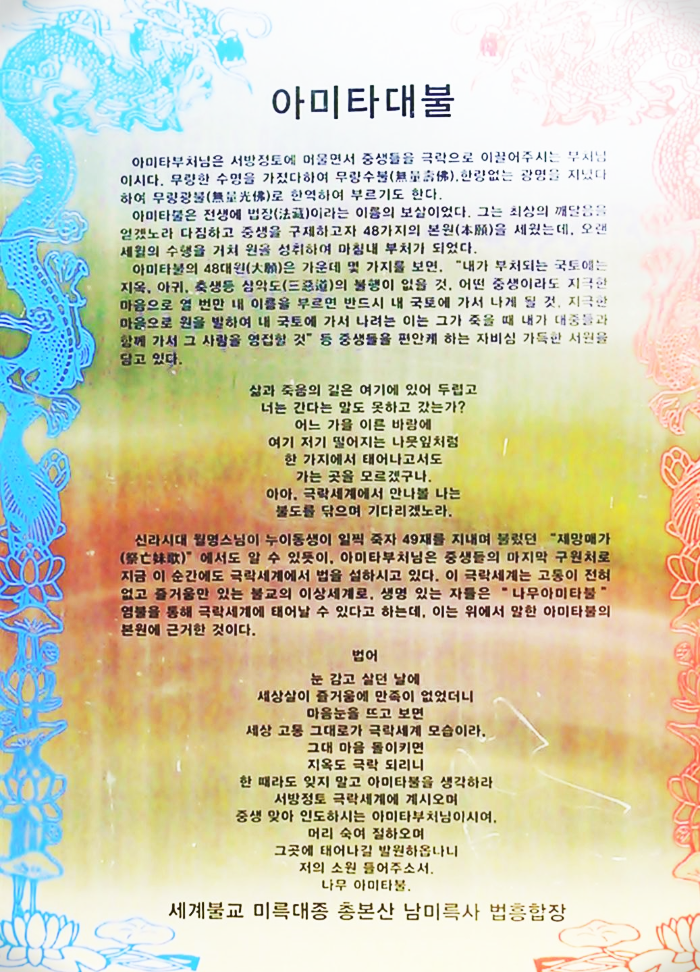 아미타대불
아미타부처님은 서방정토에 머물면서 중생들을 극락으로 이끌어주시는 부처님
이시다. 무량한 수명을 가졌다하여 무량수불(無量壽佛),한량없는 광명을 지녔다
하여 무량광불(無量光佛)로 한역하여 부르기도 한다.
아미타불은 전생에 법장(法藏)이라는 이름의 보살이었다. 그는 최상의 깨달음을
얻겠노라 다짐하고 중생을 구제하고자 48가지의 본원(本願)을 세웠는데, 오랜
세월의 수행을 거쳐 원을 성취하여 마침내 부처가 되었다.
아미타불의 48대원(大願)은 가운데 몇 가지를 보면, "내가 부처되는 국토에는
지옥, 아귀, 축생등 삼악도(三惡道)의 불행이 없을 것, 어떤 중생이라도 지극한
마음으로 열 번만 내 이름을 부르면 반드시 내 국토에 가서 나게 될 것, 지극한
마음으로 원을 발하여 내 국토에 가서 나려는 이는 그가 죽을 때 내가 대중들과
함께 가서 그 사람을 영접할 것" 등 중생들을 편안케 하는 자비심 가득한 서원을
담고 있다.
삶과 죽음의 길은 여기에 있어 두렵고
너는 간다는 말도 못하고 갔는가?
어느 가을 이른 바람에
여기 저기 떨어지는 나뭇잎처럼
한 가지에서 태어나고서도
가는 곳을 모르겠구나.
아아, 극락세계에서 만나볼 나는
불도를 닦으며 기다리겠노라.
신라시대 월명스님이 누이동생이 일찍 죽자 49재를 지내며 불렀던 "제망매가
(祭亡妹歌)" 에서도 알 수 있듯이, 아미타부처님은 중생들의 마지막 구원처로
지금 이 순간에도 극락세계에서 법을 설하시고 있다. 이 극락세계는 고통이 전혀
없고 즐거움만 있는 불교의 이상세계로, 생명 있는 자들은 " 나무아미타불 "
염불을 통해 극락세계에 태어날 수 있다고 하는데, 이는 위에서 말한 아미타불의
본원에 근거한 것이다.
법어
눈 감고 살던 날에
세상살이 즐거움에 만족이 없었더니
마음눈을 뜨고 보면
세상 고통 그대로가 극락세계 모습이라.
그대 마음 돌이키면
지옥도 극락 되리니
한 때라도 잊지 말고 아미타불을 생각하라
서방정토 극락세계에 계시오며
중생 맞아 인도하시는 아미타부처님이시여,
머리 숙여 절하오며
그곳에 태어나길 발원하옵나니
저의 소원 들어주소서.
나무 아미타불.
세계불교 미륵대종 총본산 남미륵사 법흥합장